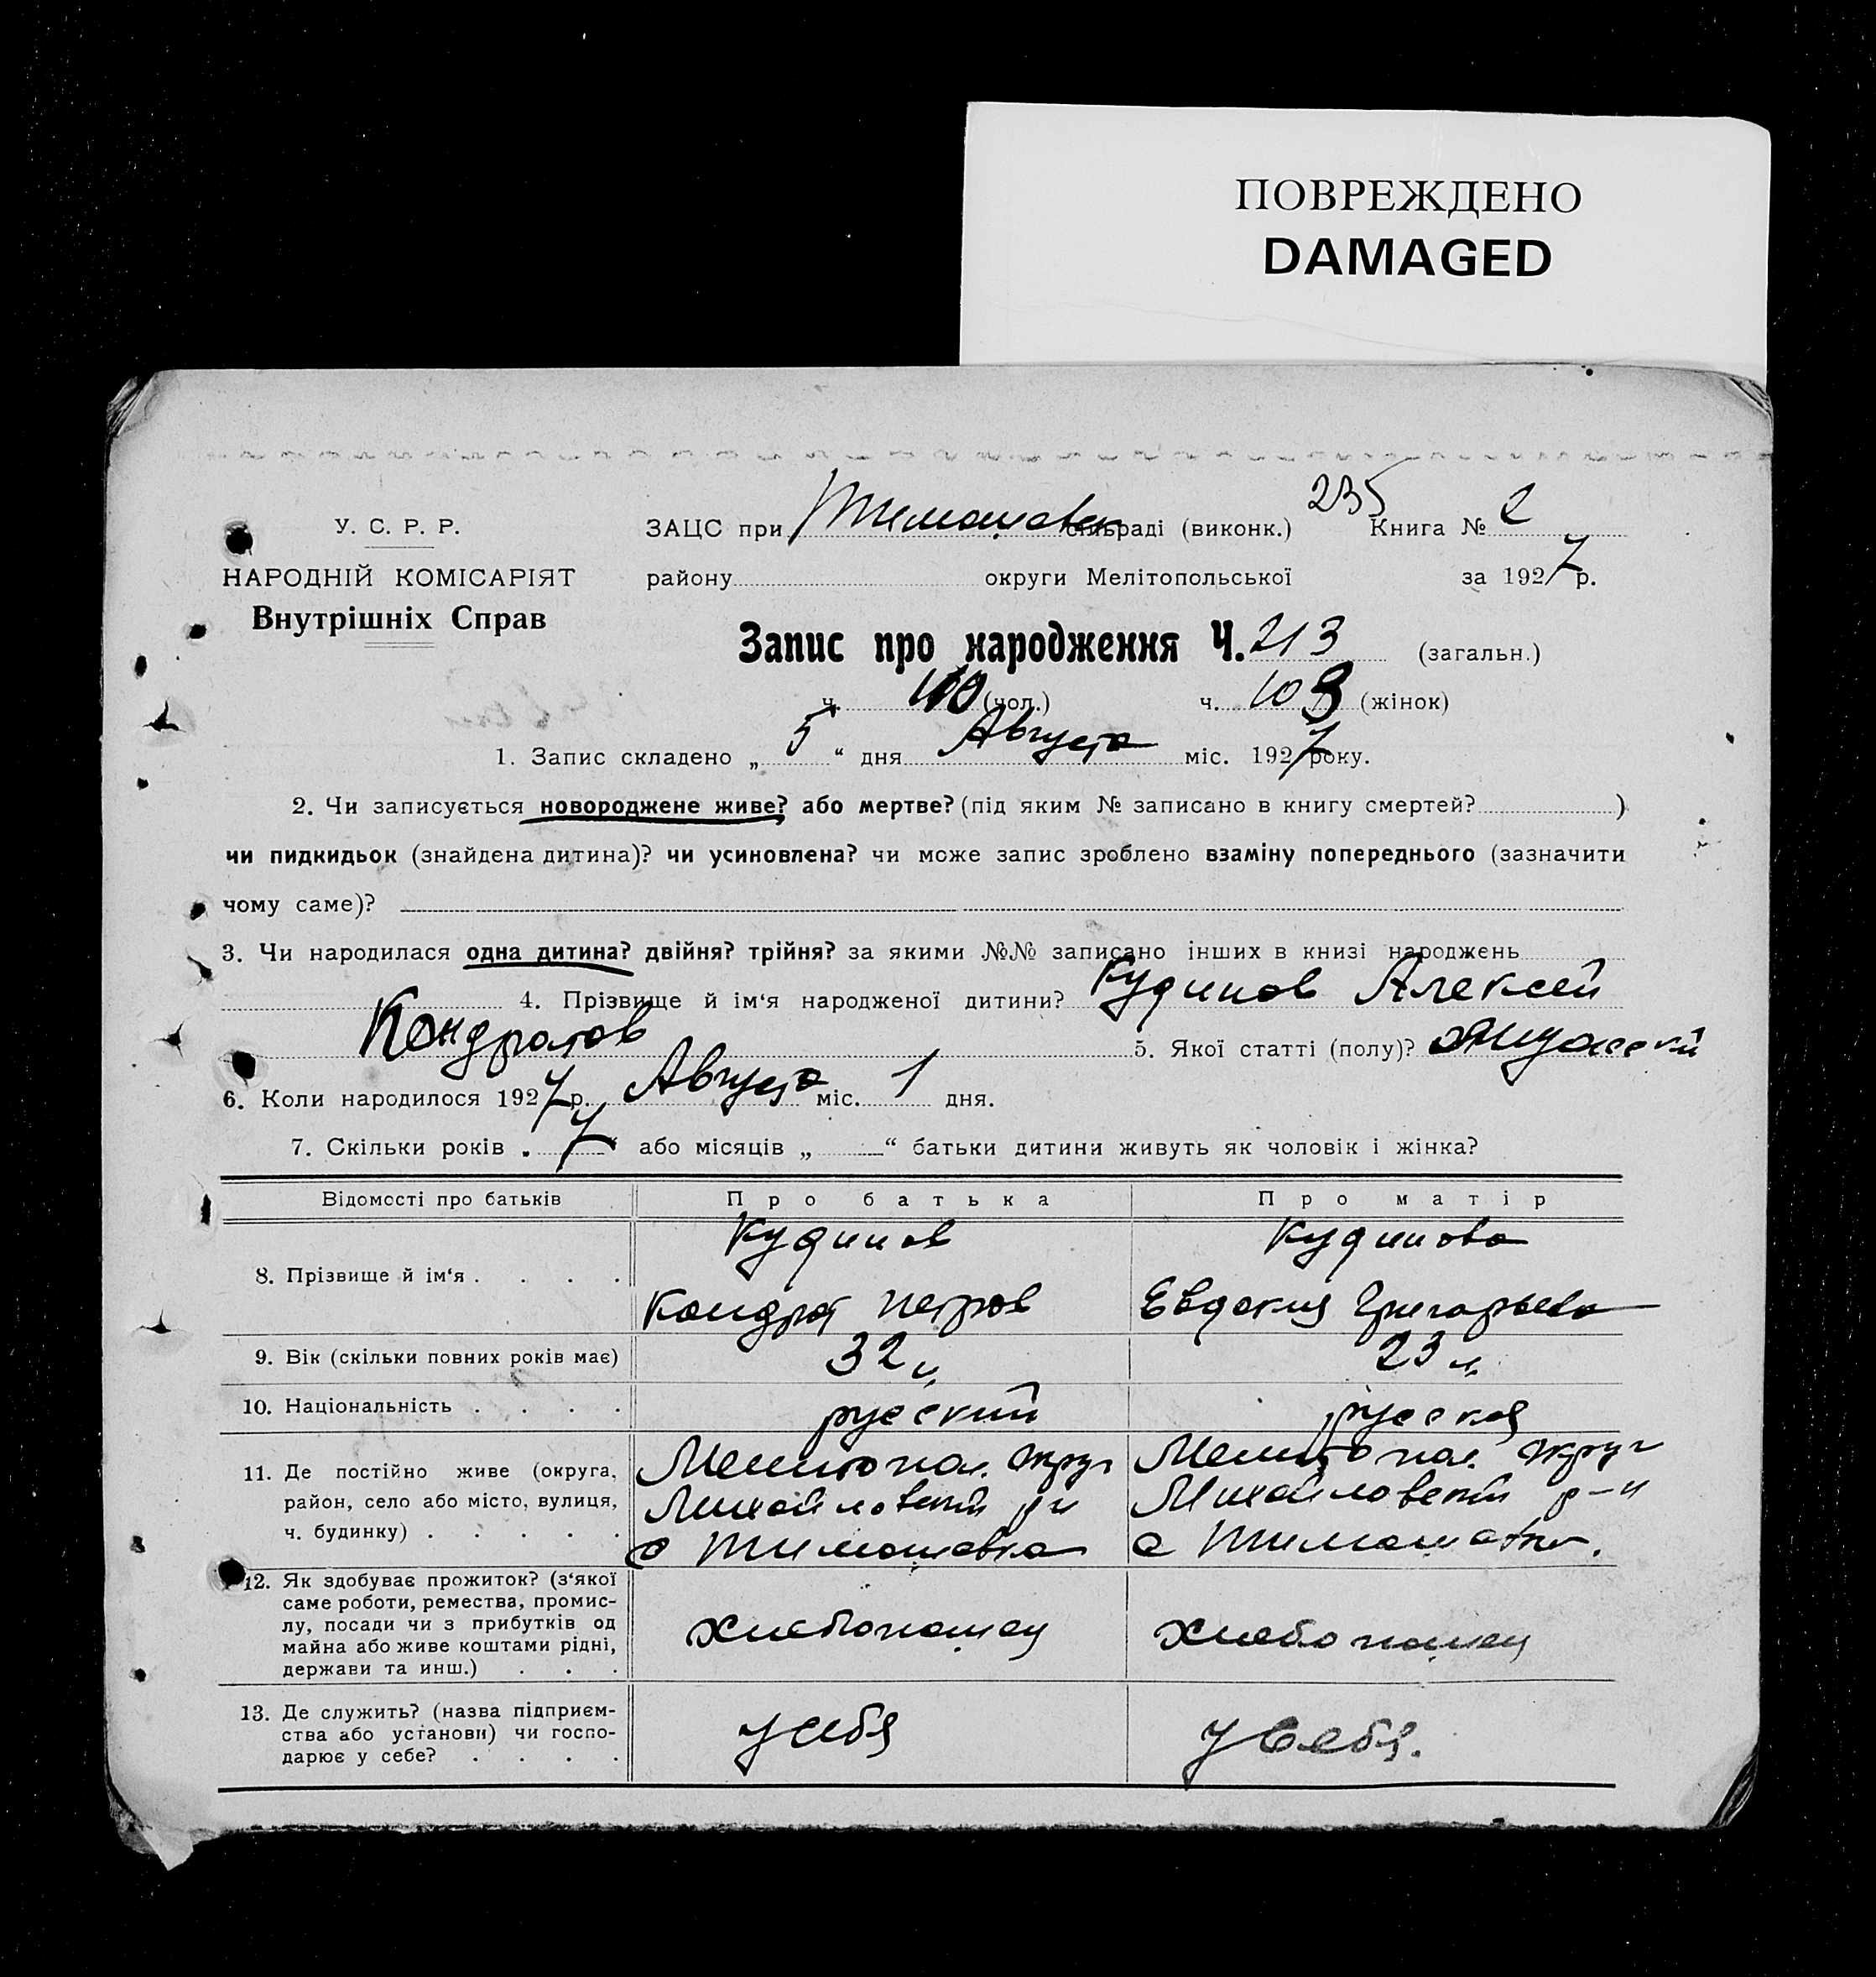 ПОВРЕЖДЕНО
DAMAGED
235
У. С. Р. Р.
ЗАЦС при Тимошовск сільраді (виконк.) Книга № 2
НАРОДНІЙ КОМІСАРІЯТ
району округи Мелітопольської за 1927 р.
Внутрішніх Справ
Запис про народження Ч. 213 (загальн.)
ч. 110 (чол.) ч. 103 (жінок)
1. Запис складено „ 5 “ дня Августа міс. 1927 року.
2. Чи записується новороджене живе? або мертве? (під яким № записано в книгу смертей? )
чи пидкидьок (знайдена дитина)? чи усиновлена? чи може запис зроблено взаміну попереднього (зазначити
чому саме)?
3. Чи народилася одна дитина? двійня? трійня? за якими №№ записано інших в книзі народжень
4. Прізвище й ім‘я народженої дитини? Кудинов Алексей
Кондратов 5. Якої статті (полу)? мужеский
6. Коли народилося 1927 р. Августа міс. 1 дня.
7. Скільки років „ 7 “ або місяців „ “ батьки дитини живуть як чоловік і жінка?
Відомості про батьків Про батька Про матір
8. Прізвище й ім‘я . . . .
Кудинов
Кондрат Петров
Кудинова
Евдокия Григорьева
9. Вік (скільки повних років має) 32 л. 23 л.
10. Національність . . . . русский русская
11. Де постійно живе (округа,
район, село або місто, вулиця,
ч. будинку) . . . . .
Мелитопол. округ
Михайловский р-н
с Тимошовка
Мелитопол. округ
Михайловский р-н
с Тимошовка.
12. Як здобуває прожиток? (з‘якої
саме роботи, ремества, промис-
лу, посади чи з прибутків од
майна або живе коштами рідні,
держави та инш.) . . .
Хлебопашец
Хлебопашец
13. Де служить? (назва підприєм-
ства або установи) чи госпо-
дарює у себе? . . . .
у себя
у себя.